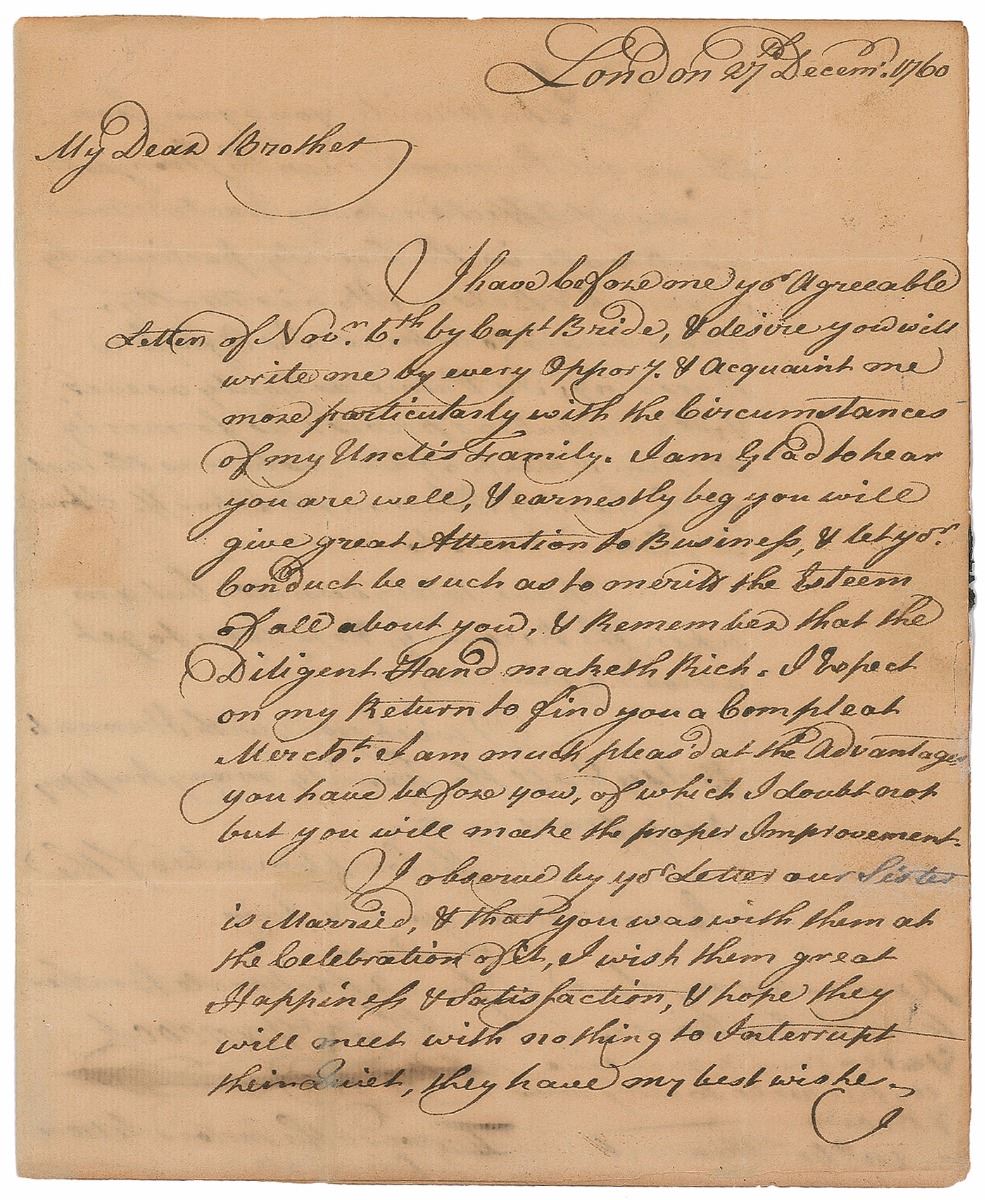 London 27th Decemr. 1760
My Dear Brother
I have before me yor Agreeable
Letter of Novr. 6th. by Capt Bride, & desire you will
write me by every Opporty. & Acquaint me
more particularly with the Circumstances
of my Uncle's Family. I am Glad to hear
you are well, & earnestly beg you will
give great Attention to Business, & let yor.
Conduct be such as to meritt the Esteem
of all about you, & Remember that the
Diligent Hand maketh Rich. I Expect
on my Return to find you a Compleat
Mercht. I am much pleas'd at the Advantages
you have before you, of which I doubt not
but you will make the proper Improvement.
I observe by yor Letter our Sister
is Married, & that you was with them at
the Celebration of it, I wish them great
Happiness & Satisfaction, & hope they
will meet with nothing to Interrupt
their Quiet, they have my best wishes
I